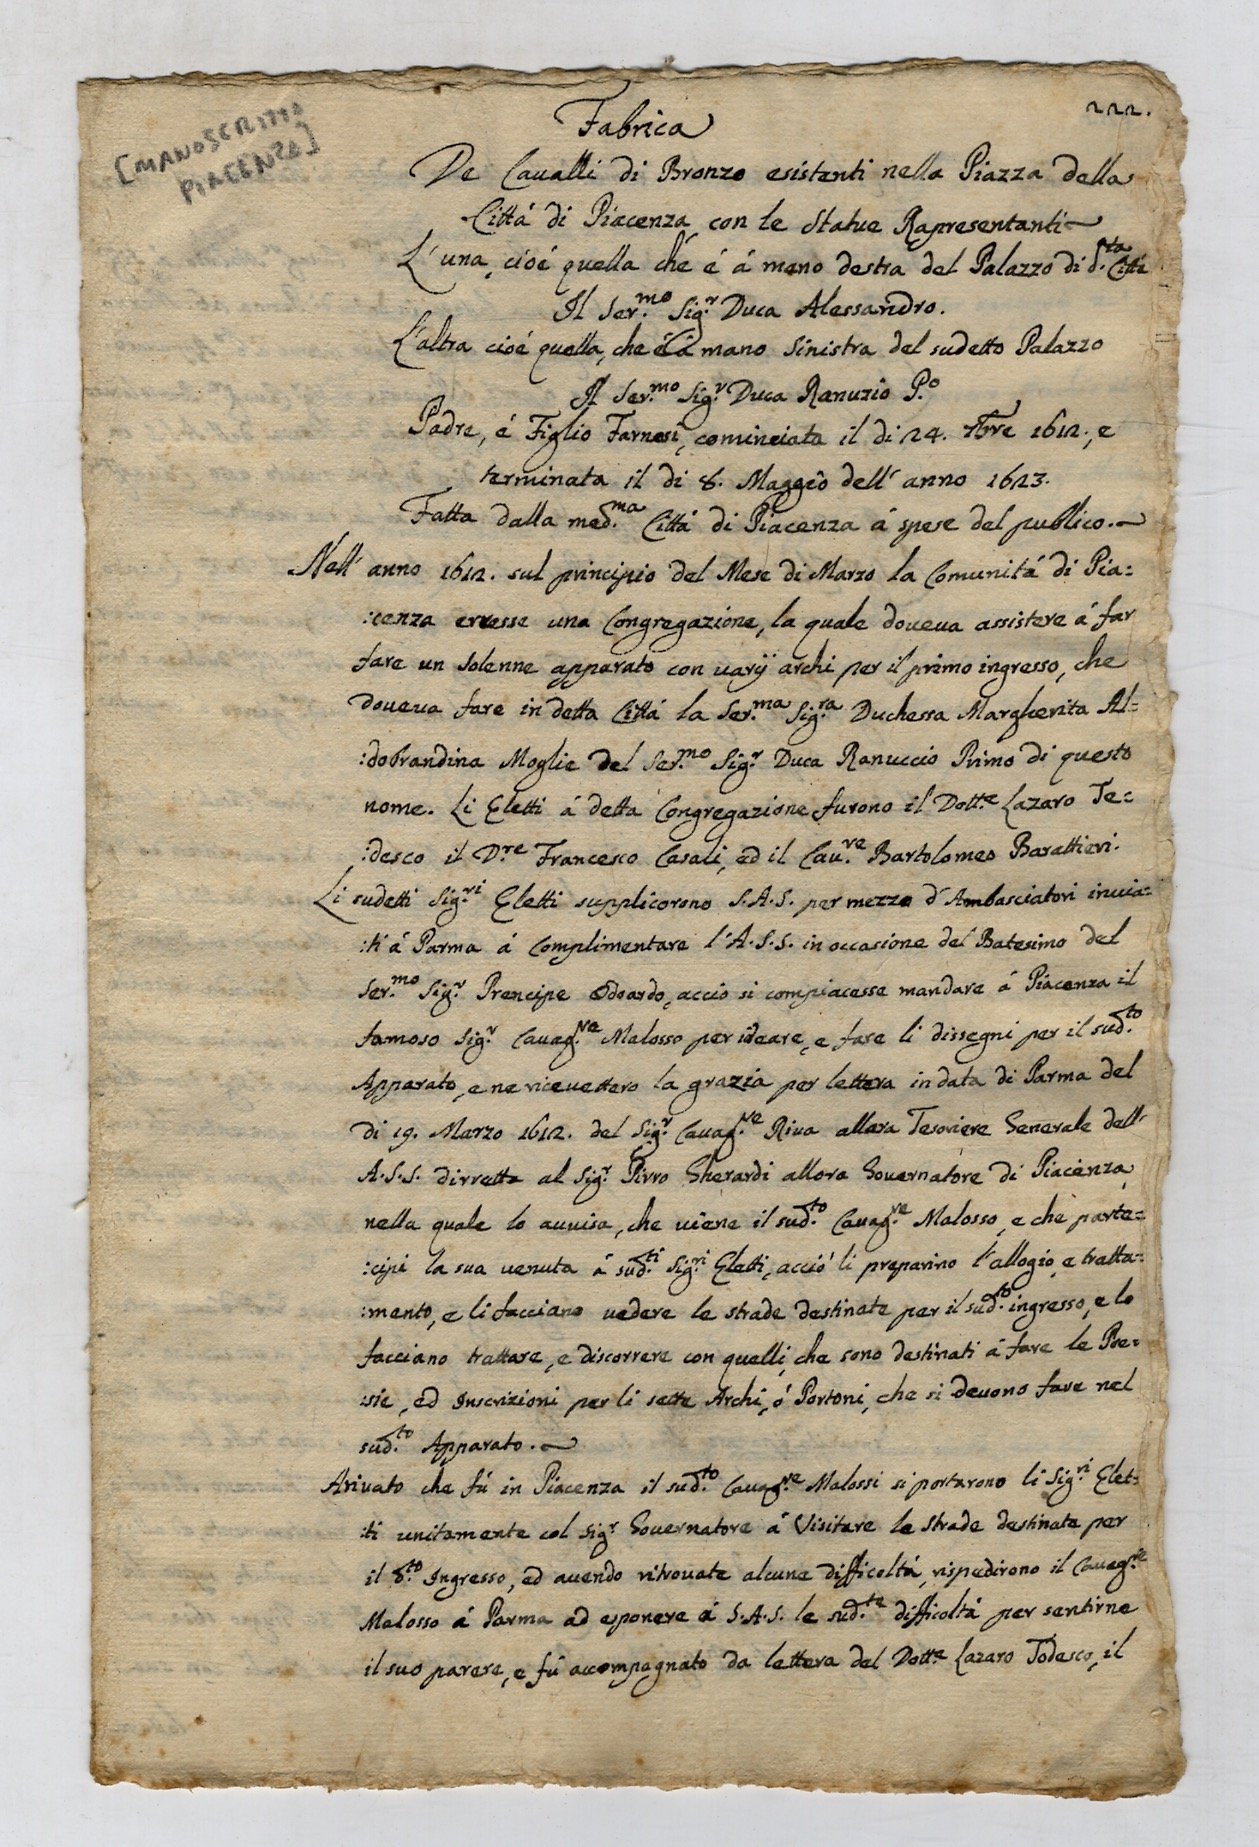 [MANOSCRITTO
PIACENZA]
222.
Fabrica
De Cavalli di Bronzo esistenti nella Piazza della
Cittá di Piacenza con le Statue Rapresentanti
L'una, cioé quella ché é á mano destra del Palazzo di d.ta Cittá
Il Ser.mo Sig.r Duca Alessandro.
L'altra cioé quella, che é á mano Sinistra del sudetto Palazzo
Il Ser.mo Sig.r Duca Ranuzio P.o
Padre, é Figlio Farnesi, cominciata il di 24. 7bre 1612., e
terminata il di 8. Maggio dell' anno 1623.
Fatta dalla med.ma Cittá di Piacenza á spese del publico.
Nell' anno 1612. sul principio del Mese di Marzo la Comunitá di Pia=
:cenza eresse una Congregazione, la quale doveva assistere á far
fare un solenne apparato con varij archi per il primo ingresso, che
doveva fare in detta Cittá la Ser.ma Sig.ra Duchessa Margherita Al=
:dobrandina Moglie del Ser.mo Sig.r Duca Ranuccio Primo di questo
nome. Li Eletti á detta Congregazione furono il Dott.e Lazaro Te=
:desco il D.re Francesco Casali, ed il Cav.re Bartolomeo Barattieri.
Li sudetti Sig.ri Eletti supplicorono S.A.S. per mezzo d'Ambasciatori invia=
:ti á Parma á Complimentare l'A.S.S. in occasione del Batesimo del
Ser.mo Sig.r Prencipe Odoardo, accio si compiacesse mandare á Piacenza il
famoso Sig.r Cavag.re Malosso per ideare, e fare li dissegni per il sud.to
Apparato, e ne ricevettero la grazia per lettera in data di Parma del
di 19. Marzo 1612. del Sig.r Cavag.re Riva allora Tesoriere Generale dell'
A.S.S. dirretta al Sig.r Pirro Gherardi allora Governatore di Piacenza,
nella quale lo avvisa, che viene il sud.to Cavag.re Malosso, e che parte=
:cipi la sua venuta á sud.ti Sig.ri Eletti, acció li preparino l'allogio, e tratta=
:mento, e li facciano vedere le strade destinate per il sud.to ingresso, e lo
facciano trattare, e discorrere con quelli, che sono destinati á fare le Poe=
:sie, ed Inscrizioni per li sette Archi, ó Portoni, che si devono fare nel
sud.to Apparato.
Arivato che fú in Piacenza il sud.to Cavag.re Malossi si portarono li Sig.ri Elet=
:ti unitamente col Sig.r Governatore á Visitare le Strade destinate per
il d.to Ingresso, ed avendo ritrovate alcune difficoltá, rispedirono il Cavag.re
Malosso á Parma ad esponere á S.A.S. le sud.te difficoltá per sentirne
il suo parere, e fú accompagnato da lettera del Dott.e Lazaro Todesco, il